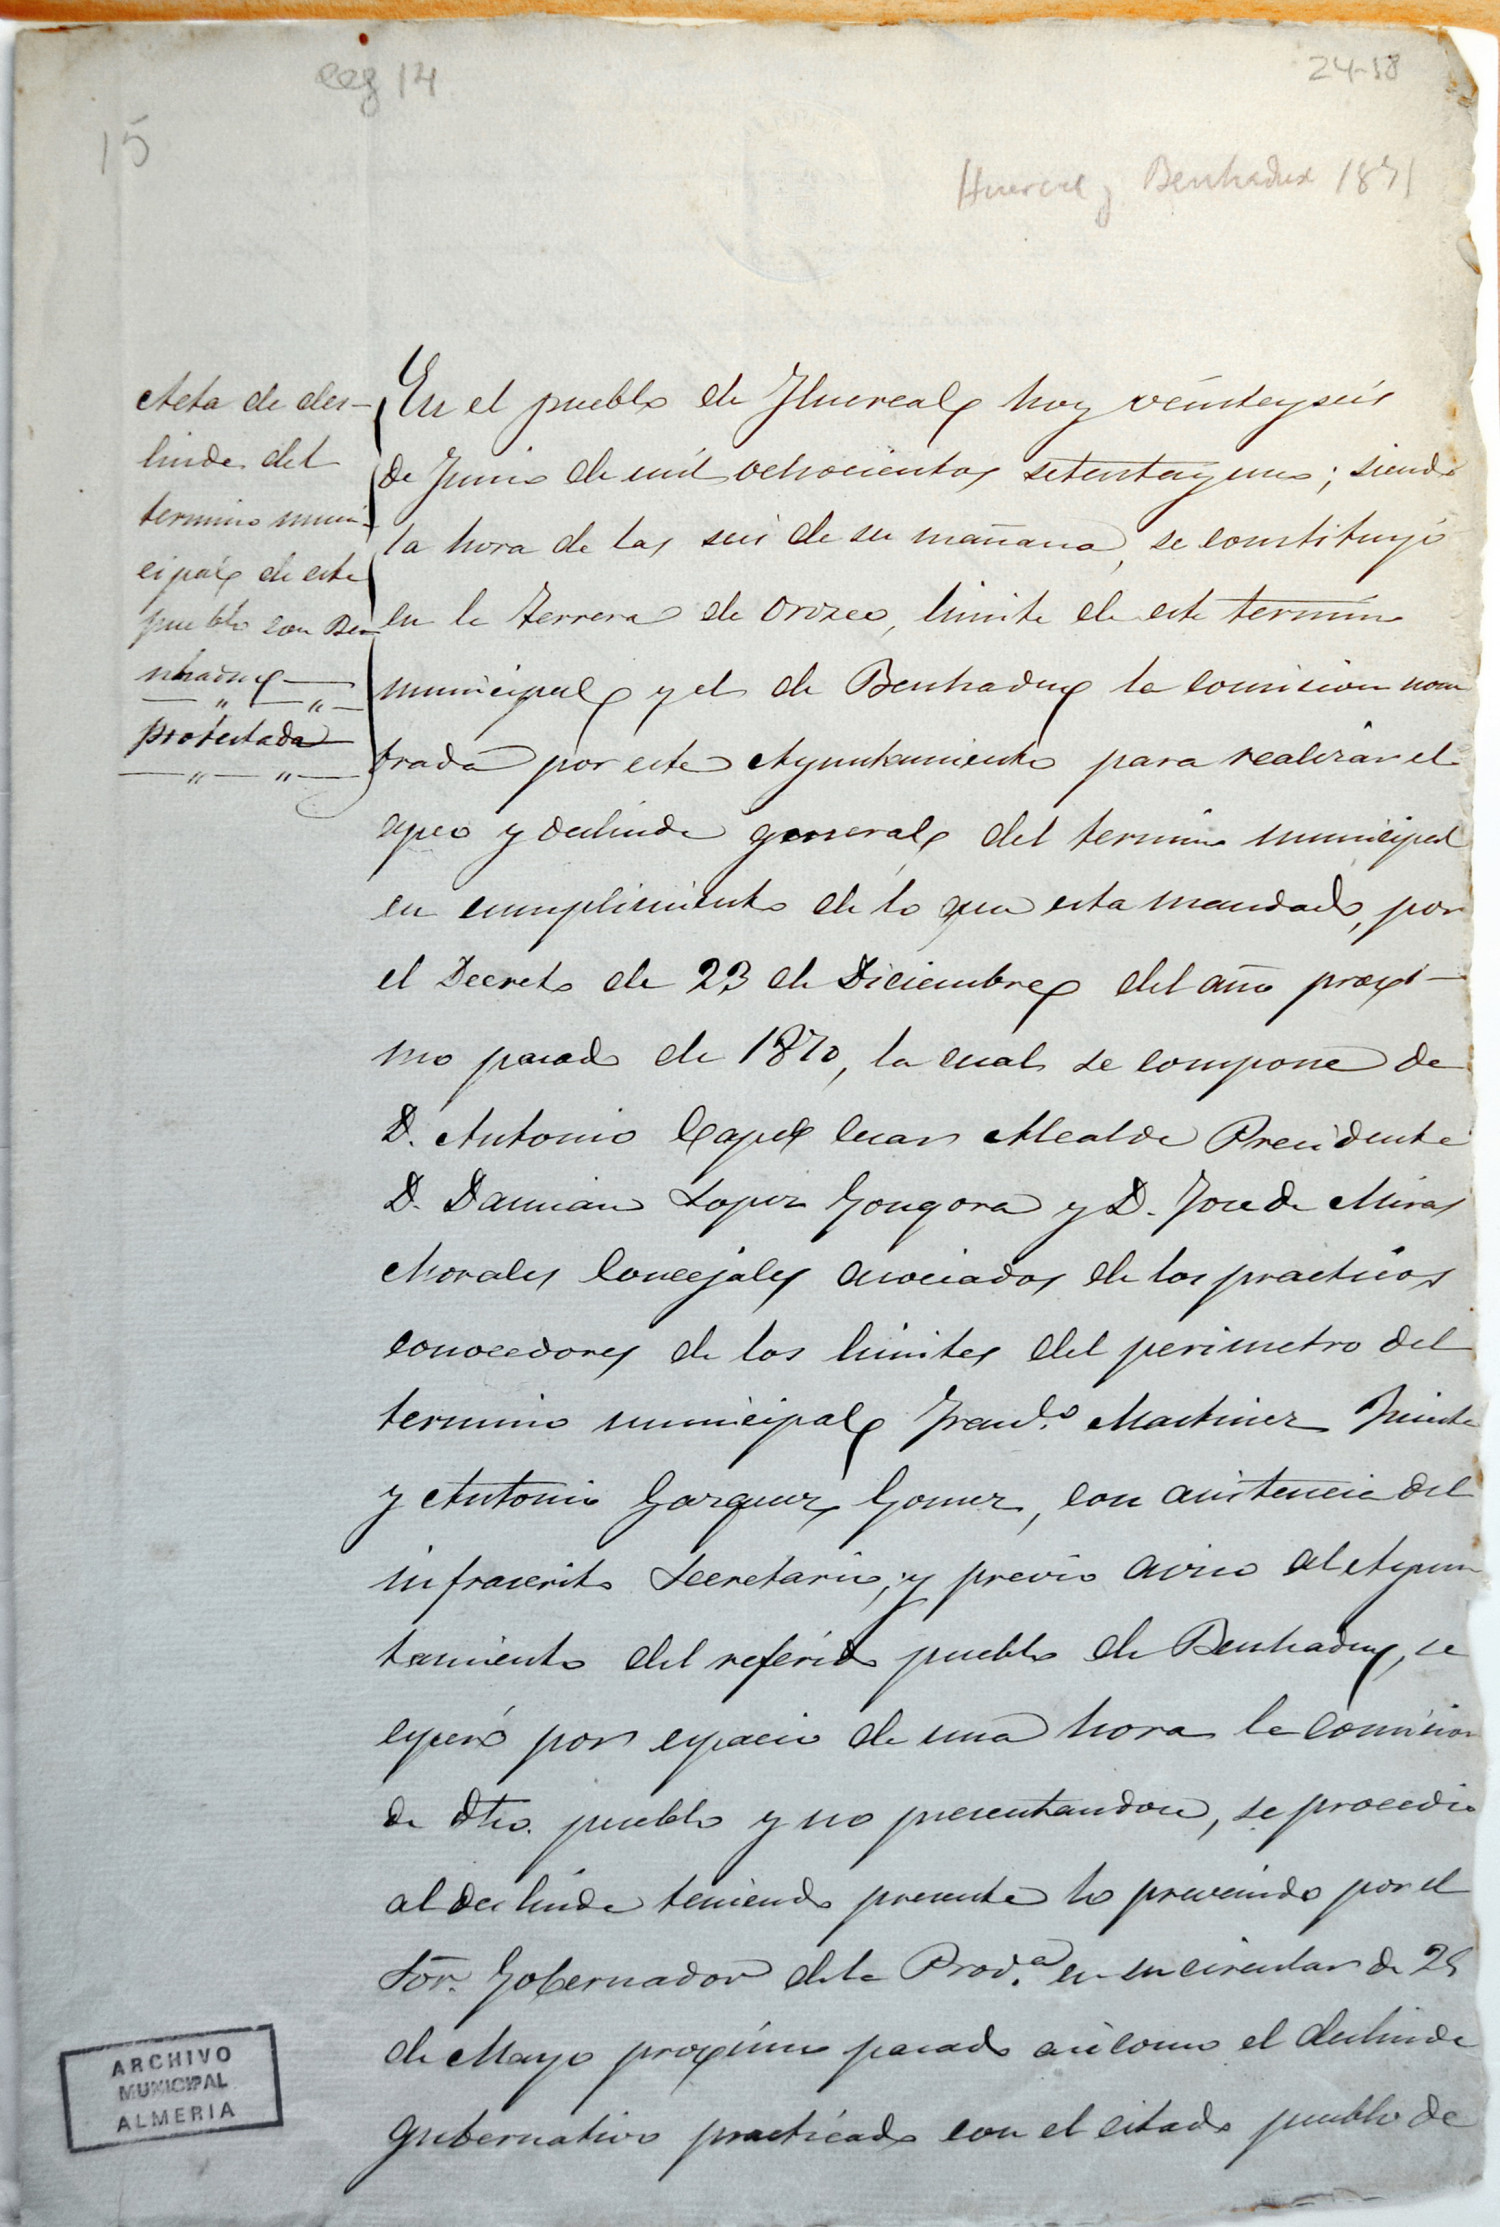 leg 14
24-18
15
Huercal y Benhadux 1871
Acta de des-
linde del
termino muni-
cipal de este
pueblo con Be
nhadux
protestada
En el pueblo de Huercal hoy veinteyseis
de Junio de mil ochocientos setentayuno; siendo
la hora de las seis de su mañana, se constituyó
en la Terrera de Orozco, limite de este termino
municipal y el de Benhadux la comision nom
brada por este Ayuntamiento para realizar el
apeo y deslinde general del termino municipal
en cumplimiento de lo que esta mandado, por
el Decreto de 23 de Diciembre del año proxi-
mo pasado de 1870, la cual se compone de
D. Antonio Capel Alcalde Presidente
D. Damian Lopez Gongora y D. Jose de Miras
Morales Concejales asociados de los practicos
conocedores de los limites del perimetro del
termino municipal Franco. Martinez
y Antonio Gazquez Gomez, con asistencia del
infrascrito Secretario, y previo aviso al Ayun
tamiento del referido pueblo de Benhadux, se
esperó por espacio de una hora la comision
de dho. pueblo y no presentandose, se procedio
al deslinde teniendo presente lo prevenido por el
Sor. Gobernador de la Prova. en su circular de 25
de Mayo proximo pasado asi como el deslinde
gubernativo practicado con el citado pueblo de
ARCHIVO
MUNICIPAL
ALMERIA